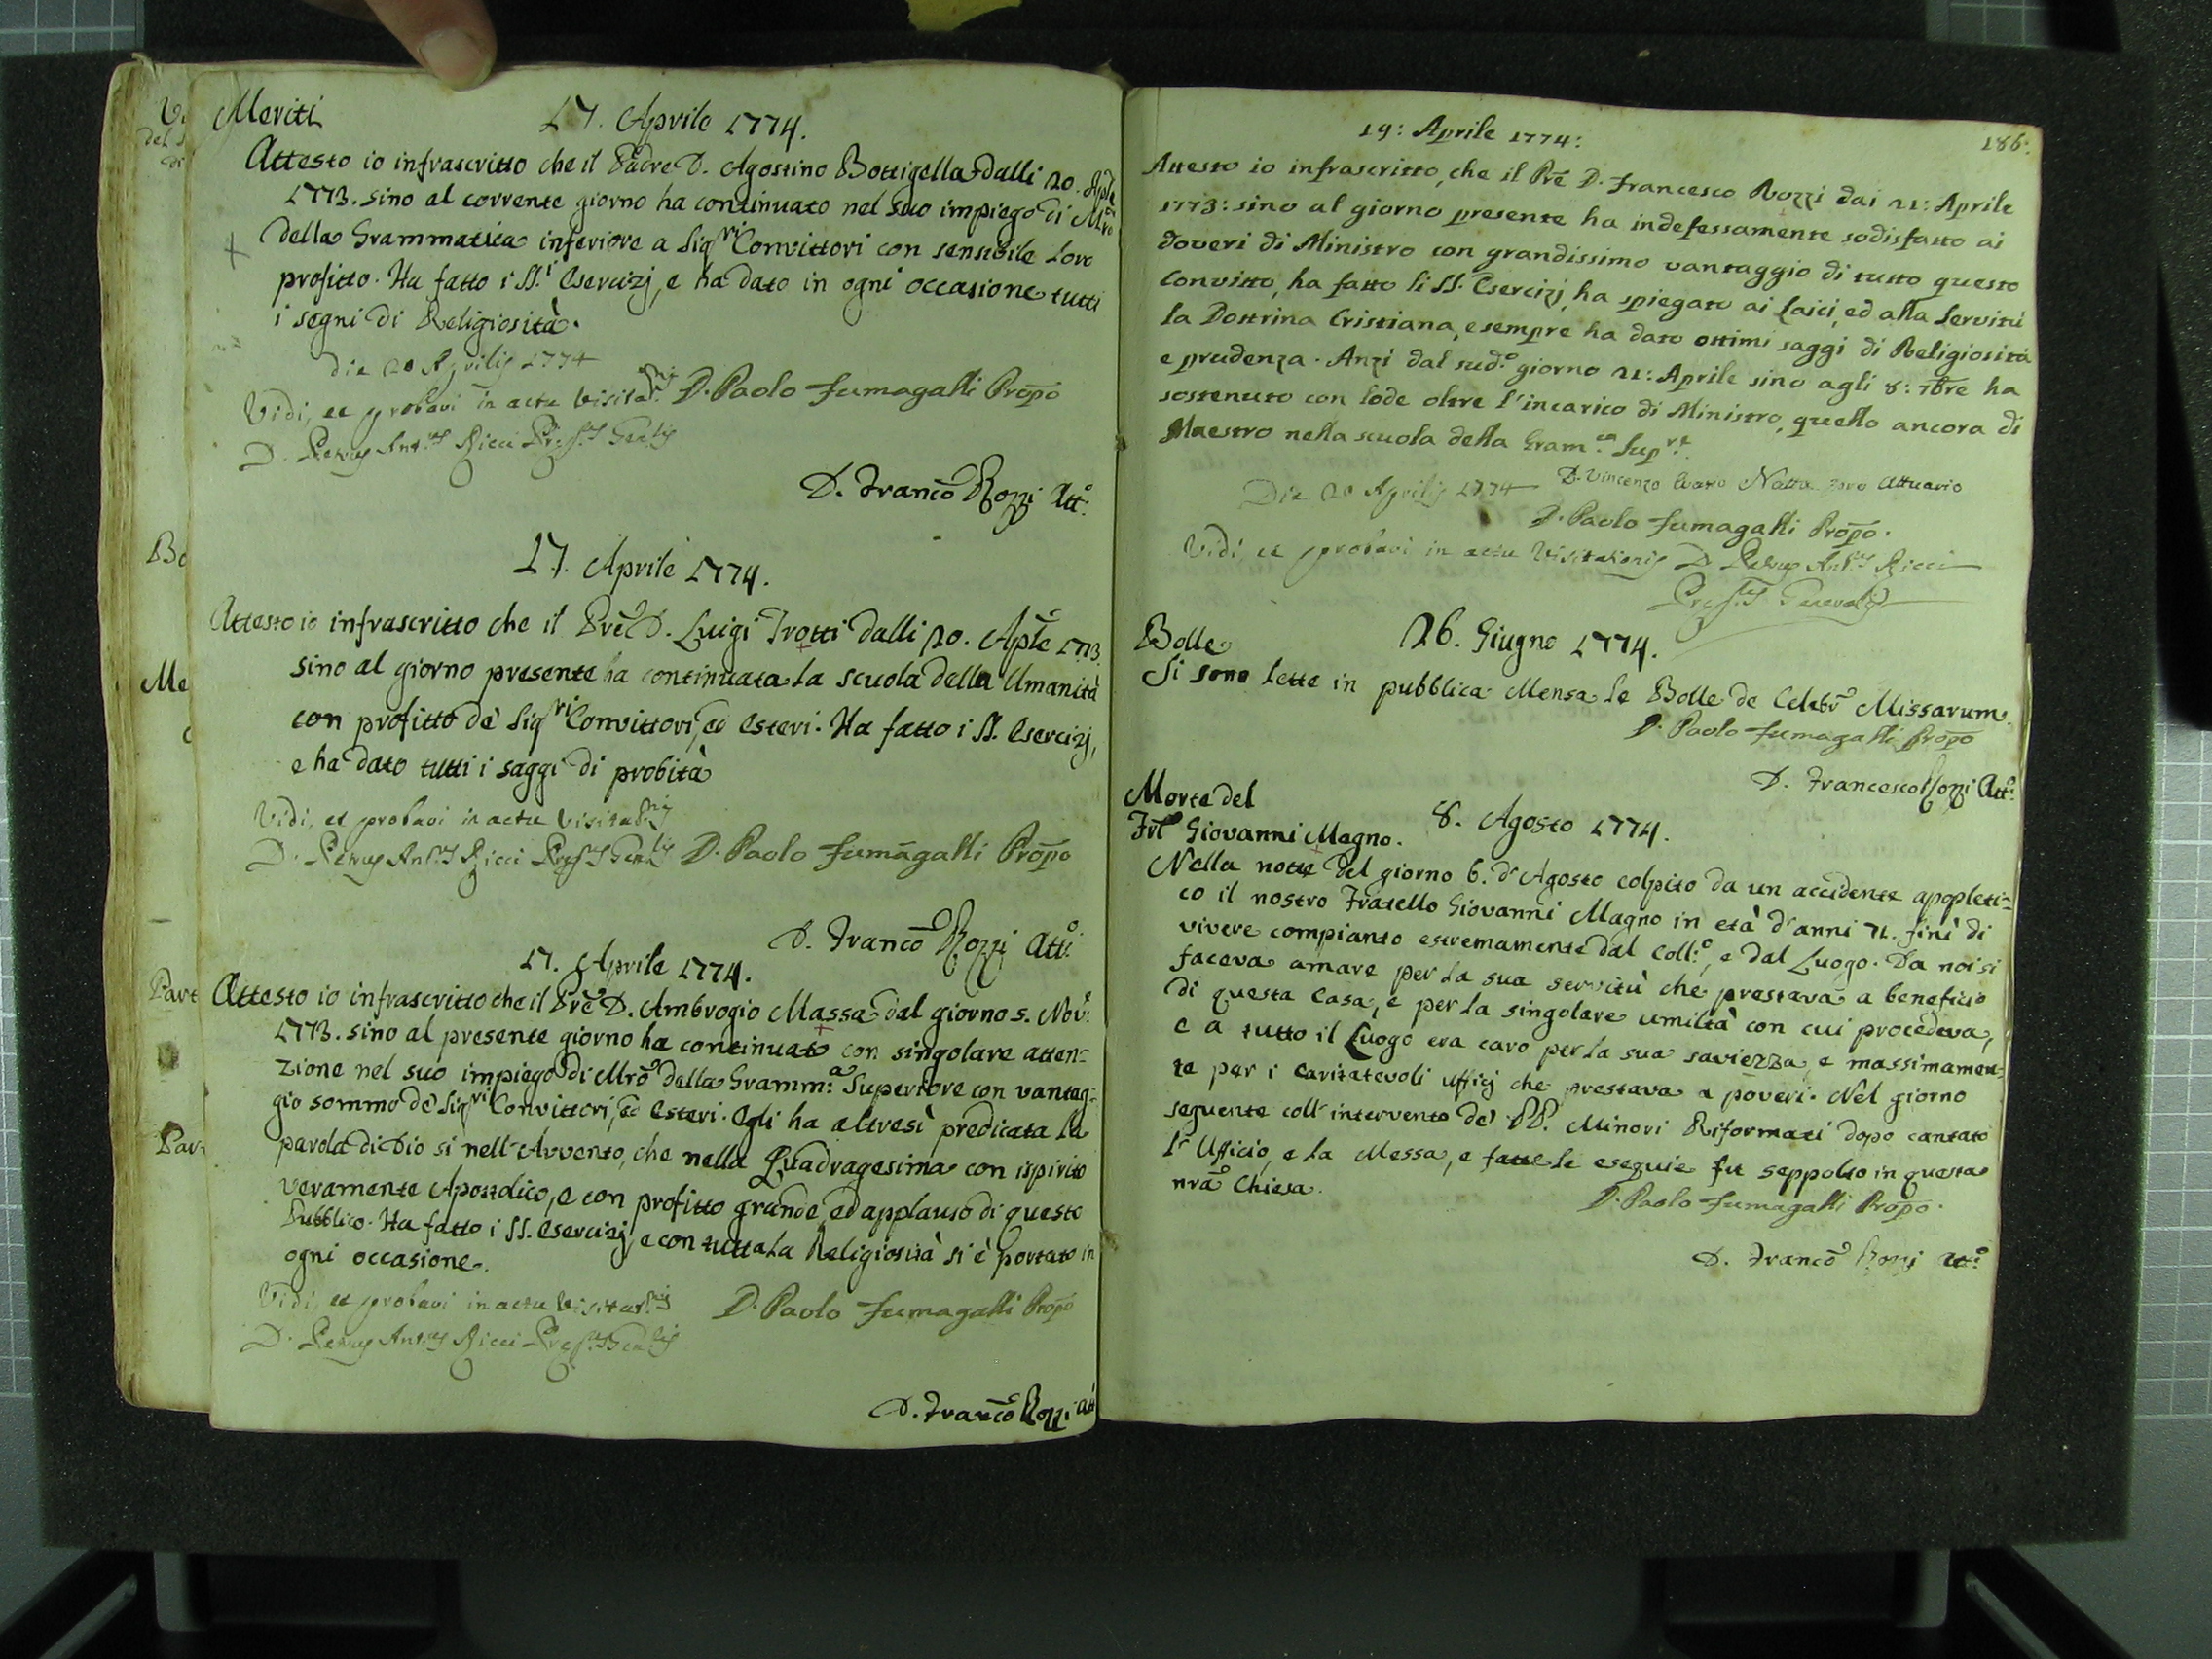 Meriti
17. Aprile 1774.
Attesto io infrascritto che il Padre D. Agostino Bottigella dalli 20. Aple
1773. sino al corrente giorno ha continuato nel suo impiego di Mro
della Grammatica inferiore a Sigri Convittori con sensibile loro
profitto. Ha fatto i SS.i Esercizj, e ha dato in ogni occasione tutti
i segni di Religiosità.
die 20 Aprilis 1774
Vidi, et probavi in actu Visitanis D. Paolo Fumagalli Propo
D. Petrus Ant.us Ricci Præs.s Gen.lis
D. Franco Rozzi Att.o
17. Aprile 1774.
Attesto io infrascritto che il Pre D. Luigi Trotti dalli 20. Aple 1773.
sino al giorno presente ha continuata la scuola della Umanità
con profitto de' Sigri Convittori, ed Esteri. Ha fatto i SS. Esercizj,
e ha dato tutti i saggi di probità
Vidi, et probavi in actu Visita.nis
D. Petrus Ant.us Ricci Præs.s Gen.lis D. Paolo Fumagalli Propo
D. Franco Rozzi Att.o
17. Aprile 1774.
Attesto io infrascritto che il Pre D. Ambrogio Massa dal giorno 5. Nov.e
1773. sino al presente giorno ha continuato con singolare atten=
zione nel suo impiego di Mro della Gramm.a Superiore con vantag=
gio sommo de' Sigri Convittori, ed Esteri. Egli ha altresì predicata la
parola di Dio si nell'Avvento, che nella Quadragesima con ispirito
veramente Apostolico, e con profitto grande, ed applauso di questo
Pubblico. Ha fatto i SS. Esercizj, e con tutta la Religiosità si è portato in
ogni occasione.
Vidi, et probavi in actu Visitat.nis D. Paolo Fumagalli Propo
D. Petrus Ant.us Ricci Præs.s Gen.lis
D. Franco Rozzi Att
186.
19: Aprile 1774:
Attesto io infrascritto, che il Pre D. Francesco Rozzi dai 21: Aprile
1773: sino al giorno presente ha indefessamente sodisfatto ai
doveri di Ministro con grandissimo vantaggio di tutto questo
Convitto, ha fatto li SS. Esercizj, ha spiegato ai Laici, ed alla Servitù
la Dottrina Cristiana, e sempre ha dato ottimi saggi di Religiosità
e prudenza. Anzi dal sud.o giorno 21: Aprile sino agli 8: 7bre ha
sostenuto con lode oltre l'incarico di Ministro, quello ancora di
Maestro nella scuola della Gram.ca Sup.re
Die 20 Aprilis 1774 D. Vincenzo Natta pro Attuario
D. Paolo Fumagalli Propo.
Vidi, et probavi in actu Visitationis D. Petrus Ant.us Ricci
Præs.s Generalis
Bolle
26. Giugno 1774.
Si sono lette in pubblica Mensa le Bolle de Celebr Missarum.
D. Paolo Fumagalli Propo
D. Francesco Rozzi Att.o
Morte del
Frl Giovanni Magno.
8. Agosto 1774.
Nella notte del giorno 6. d'Agosto colpito da un accidente apopleti=
co il nostro Fratello Giovanni Magno in età d'anni 71. finì di
vivere compianto estremamente dal Coll.o, e dal Luogo. Da noi si
faceva amare per la sua servitù che prestava a beneficio
di questa Casa, e per la singolare umiltà con cui procedeva,
e a tutto il Luogo era caro per la sua saviezza, e massimamen=
te per i caritatevoli uffici che prestava a poveri. Nel giorno
seguente coll'intervento de' PP. Minori Riformati dopo cantato
l'Ufficio, e la Messa, e fatte le esequie fu seppolto in questa
nra Chiesa.
D. Paolo Fumagalli Propo.
D. Franco Rozzi Att.o